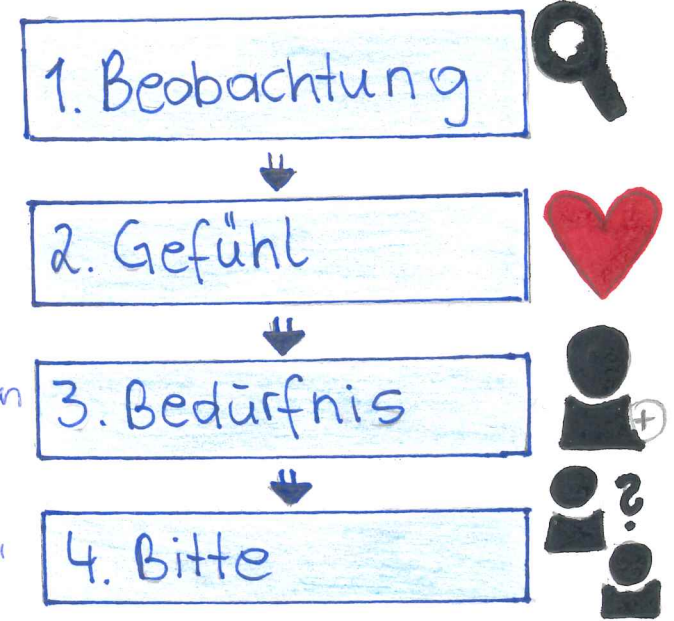 1. Beobachtung
2. Gefühl
3. Bedürfnis
4. Bitte